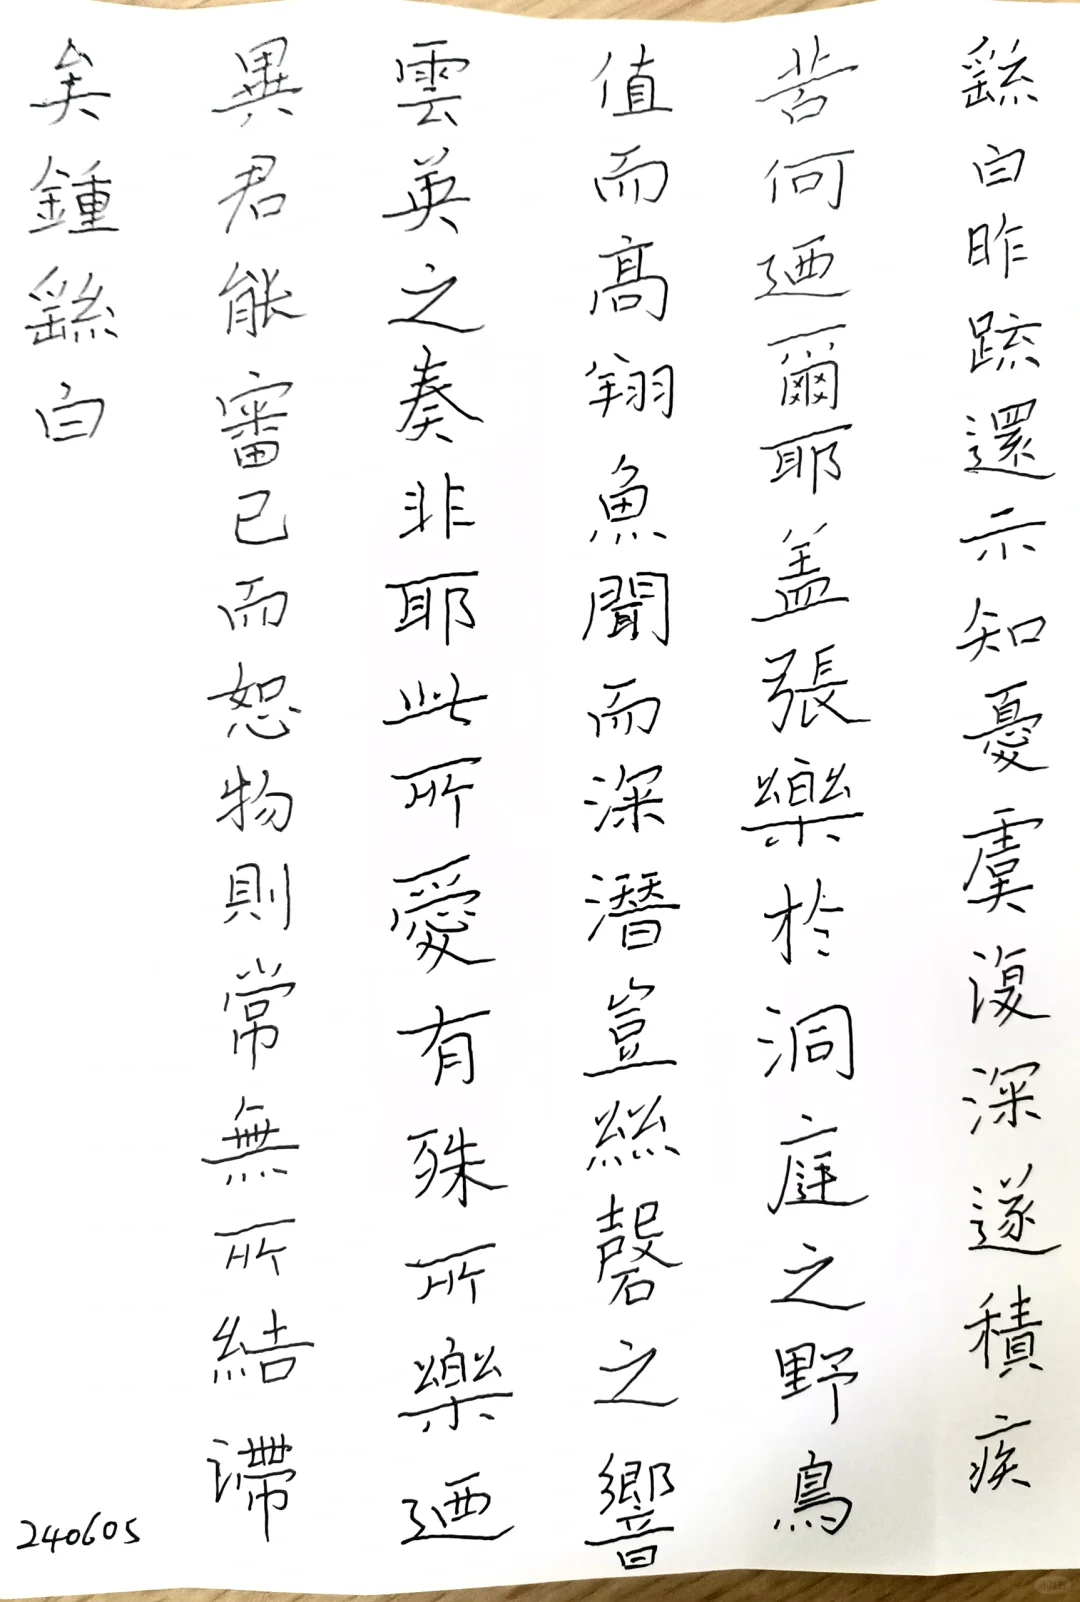 繇白昨疏還示知憂虞復深遂積疾
苦何迺爾耶蓋張樂於洞庭之野鳥
值而高翔魚聞而深潛豈絲磬之響
雲英之奏非耶此所愛有殊所樂迺
異君能審己而恕物則常無所結滯
矣鍾繇白
240605